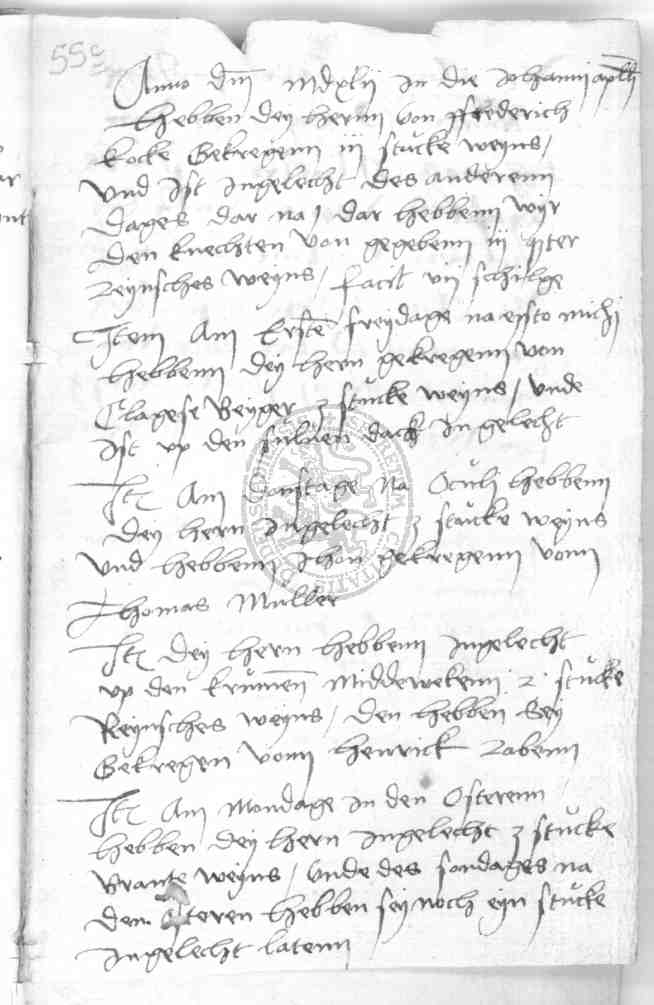 55c
Anno dm mdxlij in die Johannis aplı
Hebben dey hernn von ffrederich
kocke Gekregenn iij stucke weyns /
Vnd Ist Ingelecht des anderenn
dages dar na / dar hebbenn wyr
den knechten von gegebenn iij qter
Reynsches weyns / facit vij schilge
Item Am Ersten freydage na esto michi
hebbenn dey hern gekregenn von
Clagese Beyger 3 stucke weyns / vnde
Ist vp den suluen dach In gelecht
Itz Am Donstage na Oculi hebbenn
dey hern Ingelecht 3 stucke weyns
Vnd hebbenn schon gekregenn vonn
Thomas Muller
Itz dey hern hebbenn Ingelecht
vp den krummen Middewekenn 2 stucke
Reynsches weyns / den hebben Sey
Gekregen vonn Henrick Rabenn
Itz Am Mondage in den Osterenn
hebben dey hern Ingelecht 3 stucke
Brante weyns / Vnde des sondages na
dem Osteren hebben sey noch eyn stucke
Ingelecht latenn